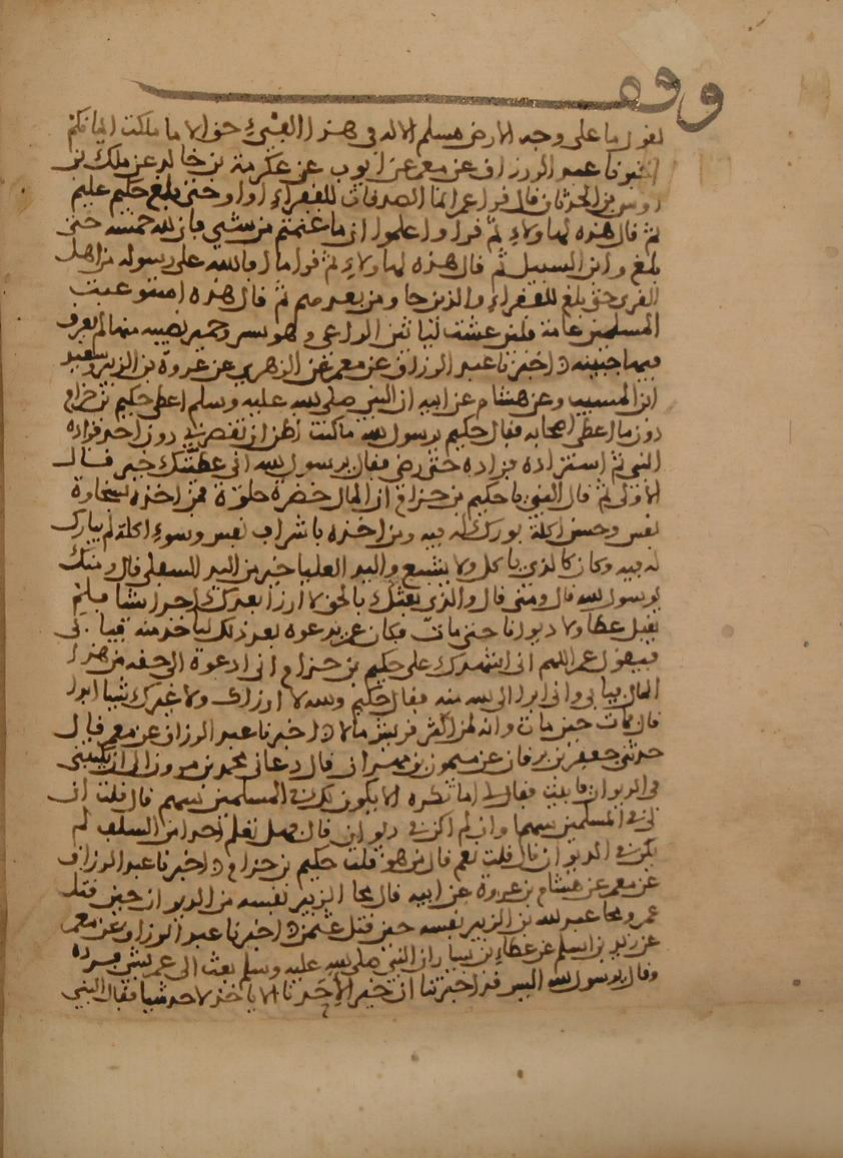 وقف
يقول ما على وجه الارض مسلم الا له في هذا الفيء حق الا ما ملكت ايمانكم
اخبرنا عبد الرزاق عن معمر عن ايوب عن عكرمة بن خالد عن ملك بن
اوس بن الحدثان قال قرا عمر انما الصدقات للفقراء فقرا حتى بلغ حكيم عليم
ثم قال هذه لهاولاء ثم قرا واعلموا ان ما غنمتم من شي فان لله خمسه حتى
بلغ وابن السبيل ثم قال هذه لهاولاء ثم قرا ما افا الله على رسوله من اهل
القرى حتى بلغ للفقراء والذين جاو من بعدهم ثم قال هذه استوعبت
المسلمين عامة فلين عشت لياتين الراعي وهو بسرو حمير نصيبه منها لم يعرق
فيها جبينه اخبرنا عبد الرزاق عن معمر عن الزهري عن عروة بن الزبير وسعيد
ابن المسيب وعن هشام عن ابيه ان النبي صلى الله عليه وسلم اعطى حكيم بن حزام
دون ما اعطى اصحابه فقال حكيم يرسول الله ما كنت اظن ان تقصر بي دون احد فزاده
النبي ثم استزاده فزاده حتى رضي فقال يرسول الله اي عطيتك خير قال
الاولى ثم قال النبي يا حكيم بن حزام ان المال خضرة حلوة فمن اخذه بسخاوة
نفس وحسن اكلة بورك له فيه ومن اخذه باشراف نفس وسوء اكلة لم يبارك
له فيه وكان كالذي ياكل ولا يشبع واليد العليا خير من اليد السفلى قال ومنك
يرسول الله قال ومني قال والذي بعثك بالحق لا ارزا بعدك احدا شيا فلم
يقبل عطا ولا ديوانا حتى مات فكان عمر يدعوه بعد ذلك لياخذ منه فيابى
فيقول عمر اللهم اني اشهدك على حكيم بن حزام اني ادعوه الى حقه من هذا
المال فيابى واني ابرا الى الله منه فقال حكيم والله لا ارزاك ولا غيرك شيا ابدا
قال فمات حين مات وانه لمن اكثر قريش مالا اخبرنا عبد الرزاق عن معمر قال
حدثني جعفر بن برقان عن ميمون بن مهران قال دعاني محمد بن مروان الى ان يكتبني
في الديوان فابيت فقال لي اما تكره الا يكون لك في المسلمين سهم قال قلت ان
لي في المسلمين سهما وان لم اكن في ديوان قال هل تعلم احدا من السلف لم
يكن في الديوان قال قلت نعم قال من هو قلت حكيم بن حزام اخبرنا عبد الرزاق
عن معمر عن هشام بن عروة عن ابيه قال محا الزبير نفسه من الديوان حين قتل
عمر ومحا عبد الله بن الزبير نفسه حين قتل عثمن اخبرنا عبد الرزاق عن معمر
عن زيد بن اسلم عن عطاء بن يسار ان النبي صلى الله عليه وسلم بعث الى عمر بشي فرده
وقال يرسول الله اليس قد اخبرتنا ان خير لاحدنا الا ياخذ لاحد شيا فقال النبي